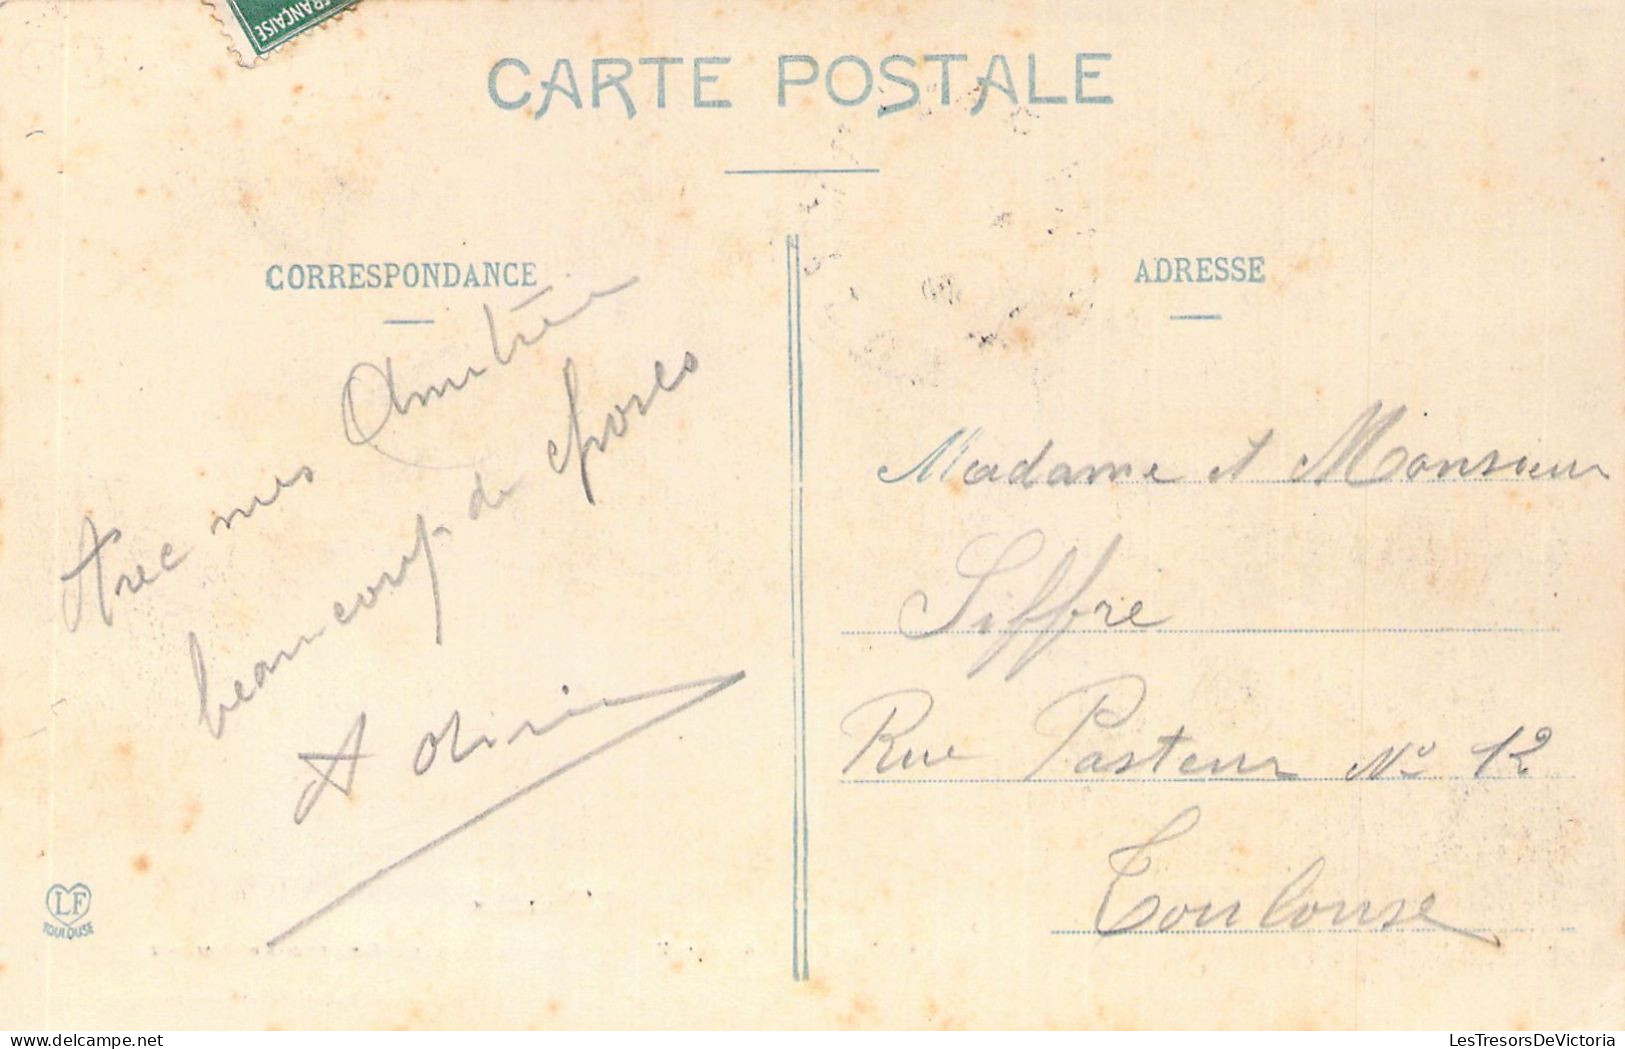 FRANÇAISE
CARTE POSTALE
CORRESPONDANCE
Avec mes Amitiés
beaucoup de choses
A
LF
TOULOUSE
ADRESSE
Madame et Monsieur
Siffre
Rue Pasteur No 12
Toulouse
LesTresorsDeVictoria